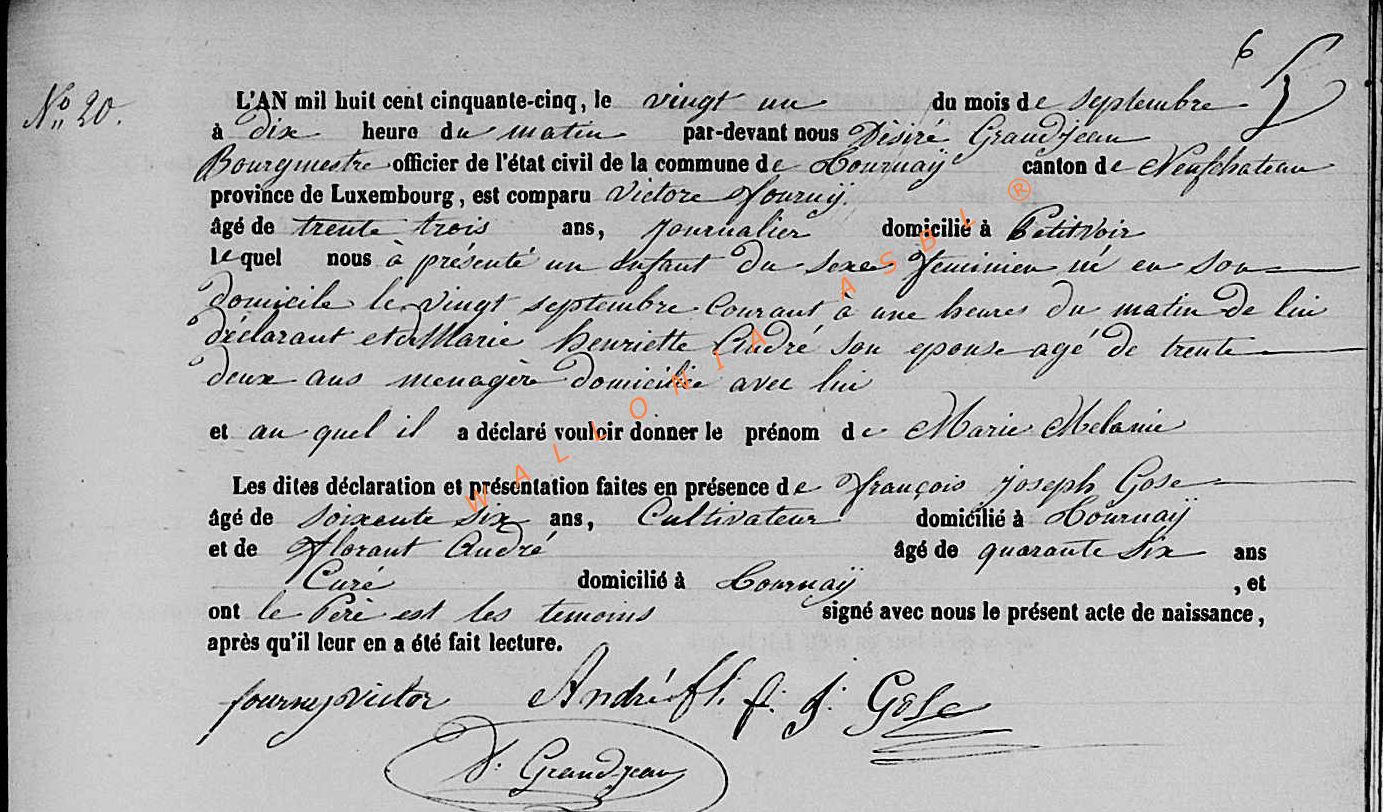 6
N° 20.
L'AN mil huit cent cinquante-cinq, le vingt un du mois de septembre
à dix heure du matin par-devant nous Désiré Grandjean
Bourgmestre officier de l'état civil de la commune de Tournaÿ canton de Neufchateau
province de Luxembourg, est comparu Victore Fournÿ
âgé de trente trois ans, journalier domicilié à Petitvoir
lequel nous à présenté un enfant du sexe feminien né en son
domicile le vingt septembre courant à une heures du matin de lui
déclarant et de Marie henriette André son epouse agé de trente
deux ans menagère domicilie avec lui
et au quel il a déclaré vouloir donner le prénom de Marie Melanie
Les dites déclaration et présentation faites en présence de françois joseph Gose
âgé de soixente six ans, Cultivateur domicilié à Tournaÿ
et de florant André âgé de quarante six ans
Curé domicilié à Tournaÿ, et
ont le Perè est les temoins signé avec nous le présent acte de naissance,
après qu'il leur en a été fait lecture.
fourny victor André fl. f. j. Gose
D. Grandjean
WALLONIA ASBL ®